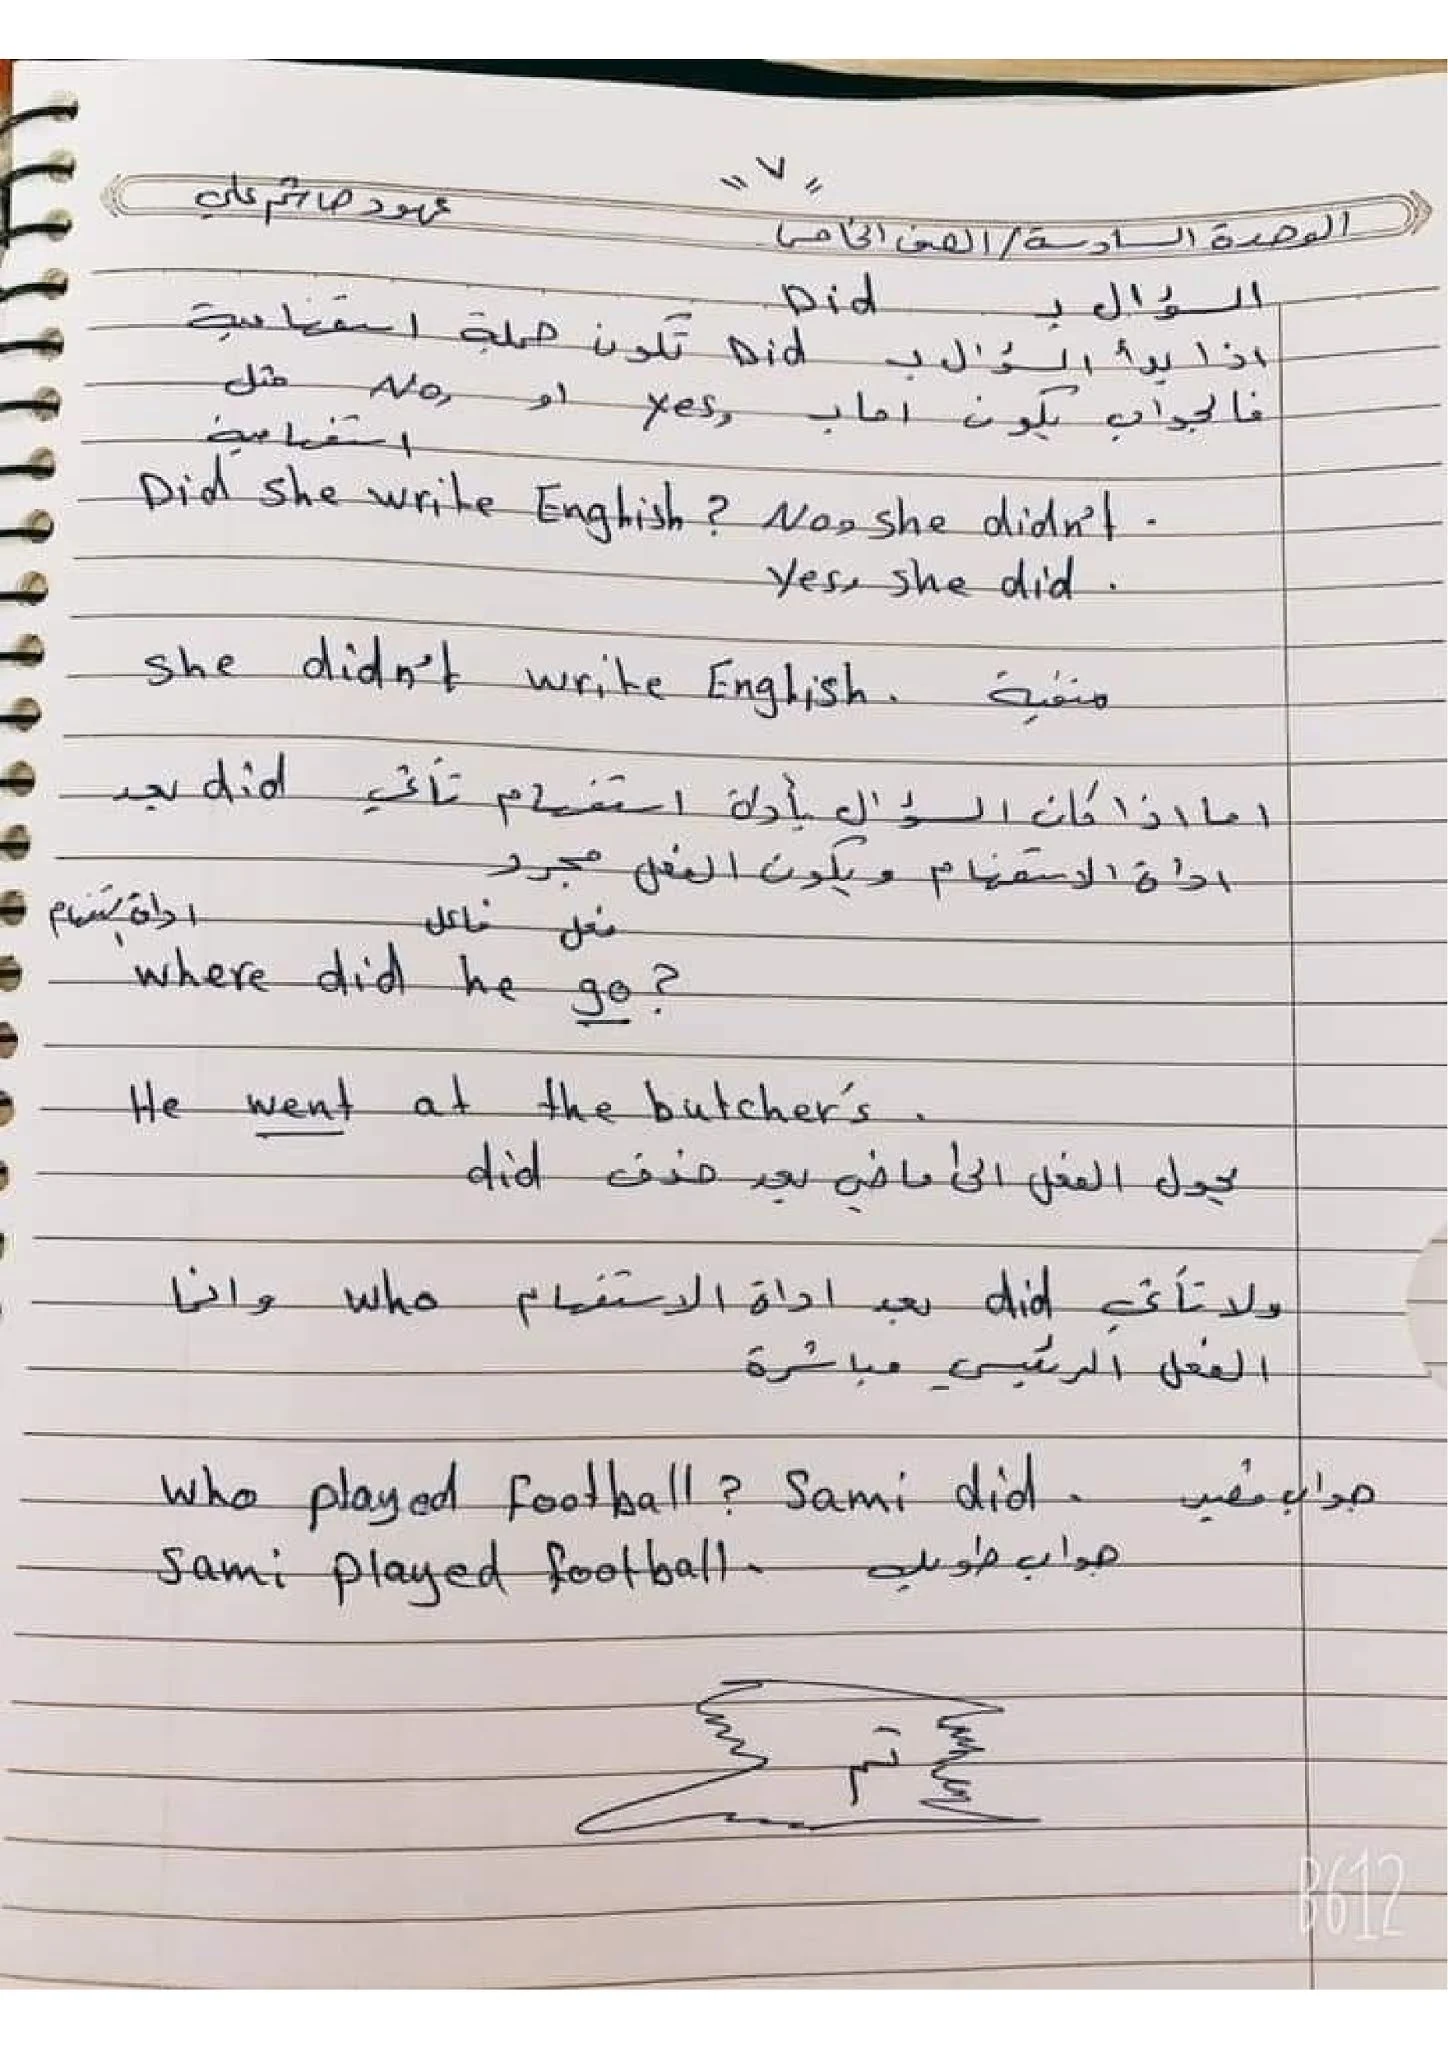 "٧"
الوحدة السادسة / الصف الخامس عهود هاشم علي
السؤال بـ Did
اذا بدأ السؤال بـ Did تكون جملة استفهامية
فالجواب يكون اما بـ yes, او No, مثل
استفهامية
Did she write English? No, she didn't.
Yes, she did.
She didn't write English. منفية
اما اذا كان السؤال بأداة استفهام تأتي did بعد
اداة الاستفهام ويكون الفعل مجرد
اداة استفهام فاعل فعل
where did he go?
He went at the butcher's.
يحول الفعل الى ماضي بعد حذف did
ولا تأتي did بعد اداة الاستفهام who وانما
الفعل الرئيسي مباشرة
Who played football? Sami did. جواب قصير
Sami played football. جواب طويل
تم
B612